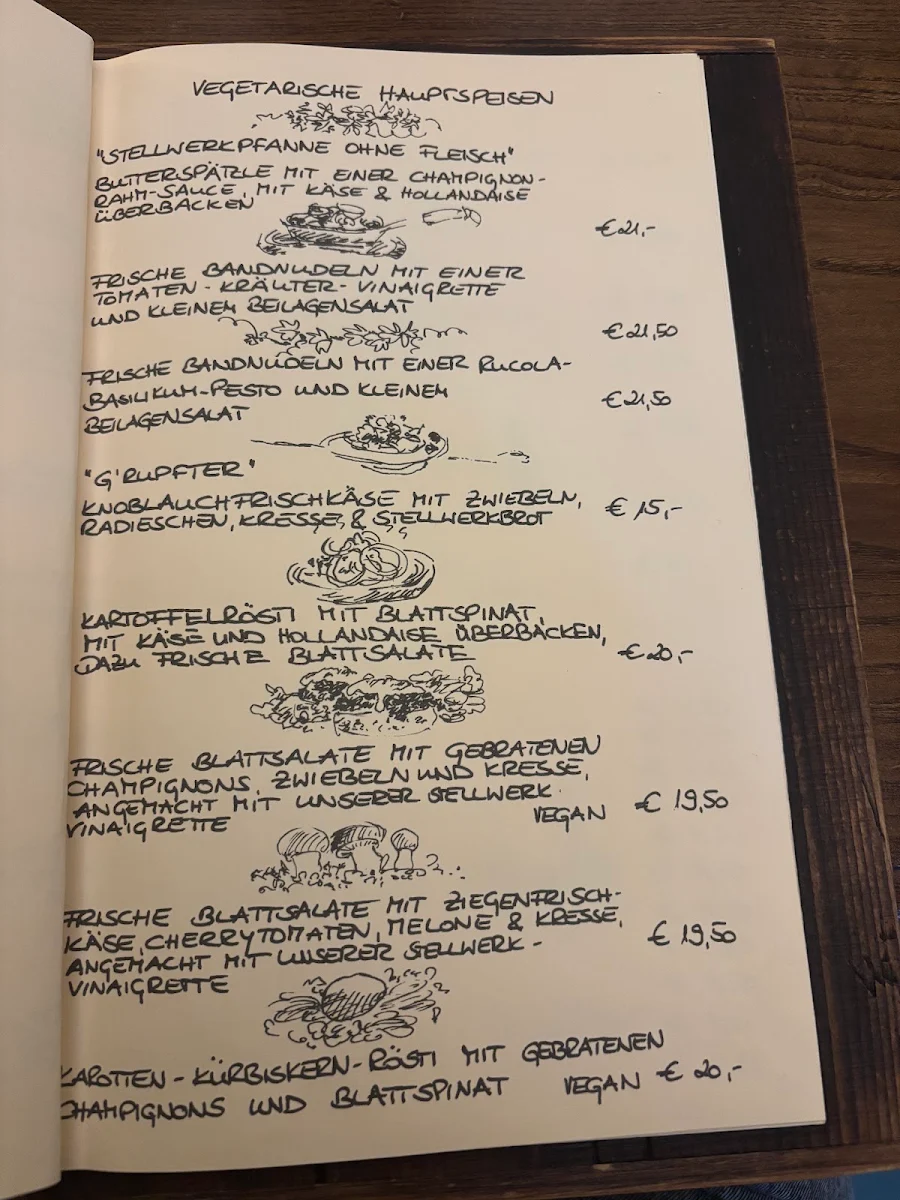 VEGETARISCHE HAUPTSPEISEN
"STELLWERKPFANNE OHNE FLEISCH"
BUTTERSPÄTZLE MIT EINER CHAMPIGNON-
RAHM-SAUCE, MIT KÄSE & HOLLANDAISE
ÜBERBACKEN
€ 21,-
FRISCHE BANDNUDELN MIT EINER
TOMATEN-KRÄUTER-VINAIGRETTE
UND KLEINEM BEILAGENSALAT
€ 21,50
FRISCHE BANDNUDELN MIT EINER RUCOLA-
BASILIKUM-PESTO UND KLEINEM
BEILAGENSALAT
€ 21,50
"G'RUPFTER"
KNOBLAUCHFRISCHKÄSE MIT ZWIEBELN,
RADIESCHEN, KRESSE, & STELLWERKBROT
€ 15,-
KARTOFFELRÖSTI MIT BLATTSPINAT,
MIT KÄSE UND HOLLANDAISE ÜBERBACKEN,
DAZU FRISCHE BLATTSALATE
€ 20,-
FRISCHE BLATTSALATE MIT GEBRATENEN
CHAMPIGNONS, ZWIEBELN UND KRESSE,
ANGEMACHT MIT UNSERER STELLWERK-
VINAIGRETTE
VEGAN € 19,50
FRISCHE BLATTSALATE MIT ZIEGENFRISCH-
KÄSE, CHERRYTOMATEN, MELONE & KRESSE,
ANGEMACHT MIT UNSERER STELLWERK-
VINAIGRETTE
€ 19,50
KAROTTEN-KÜRBISKERN-RÖSTI MIT GEBRATENEN
CHAMPIGNONS UND BLATTSPINAT VEGAN € 20,-